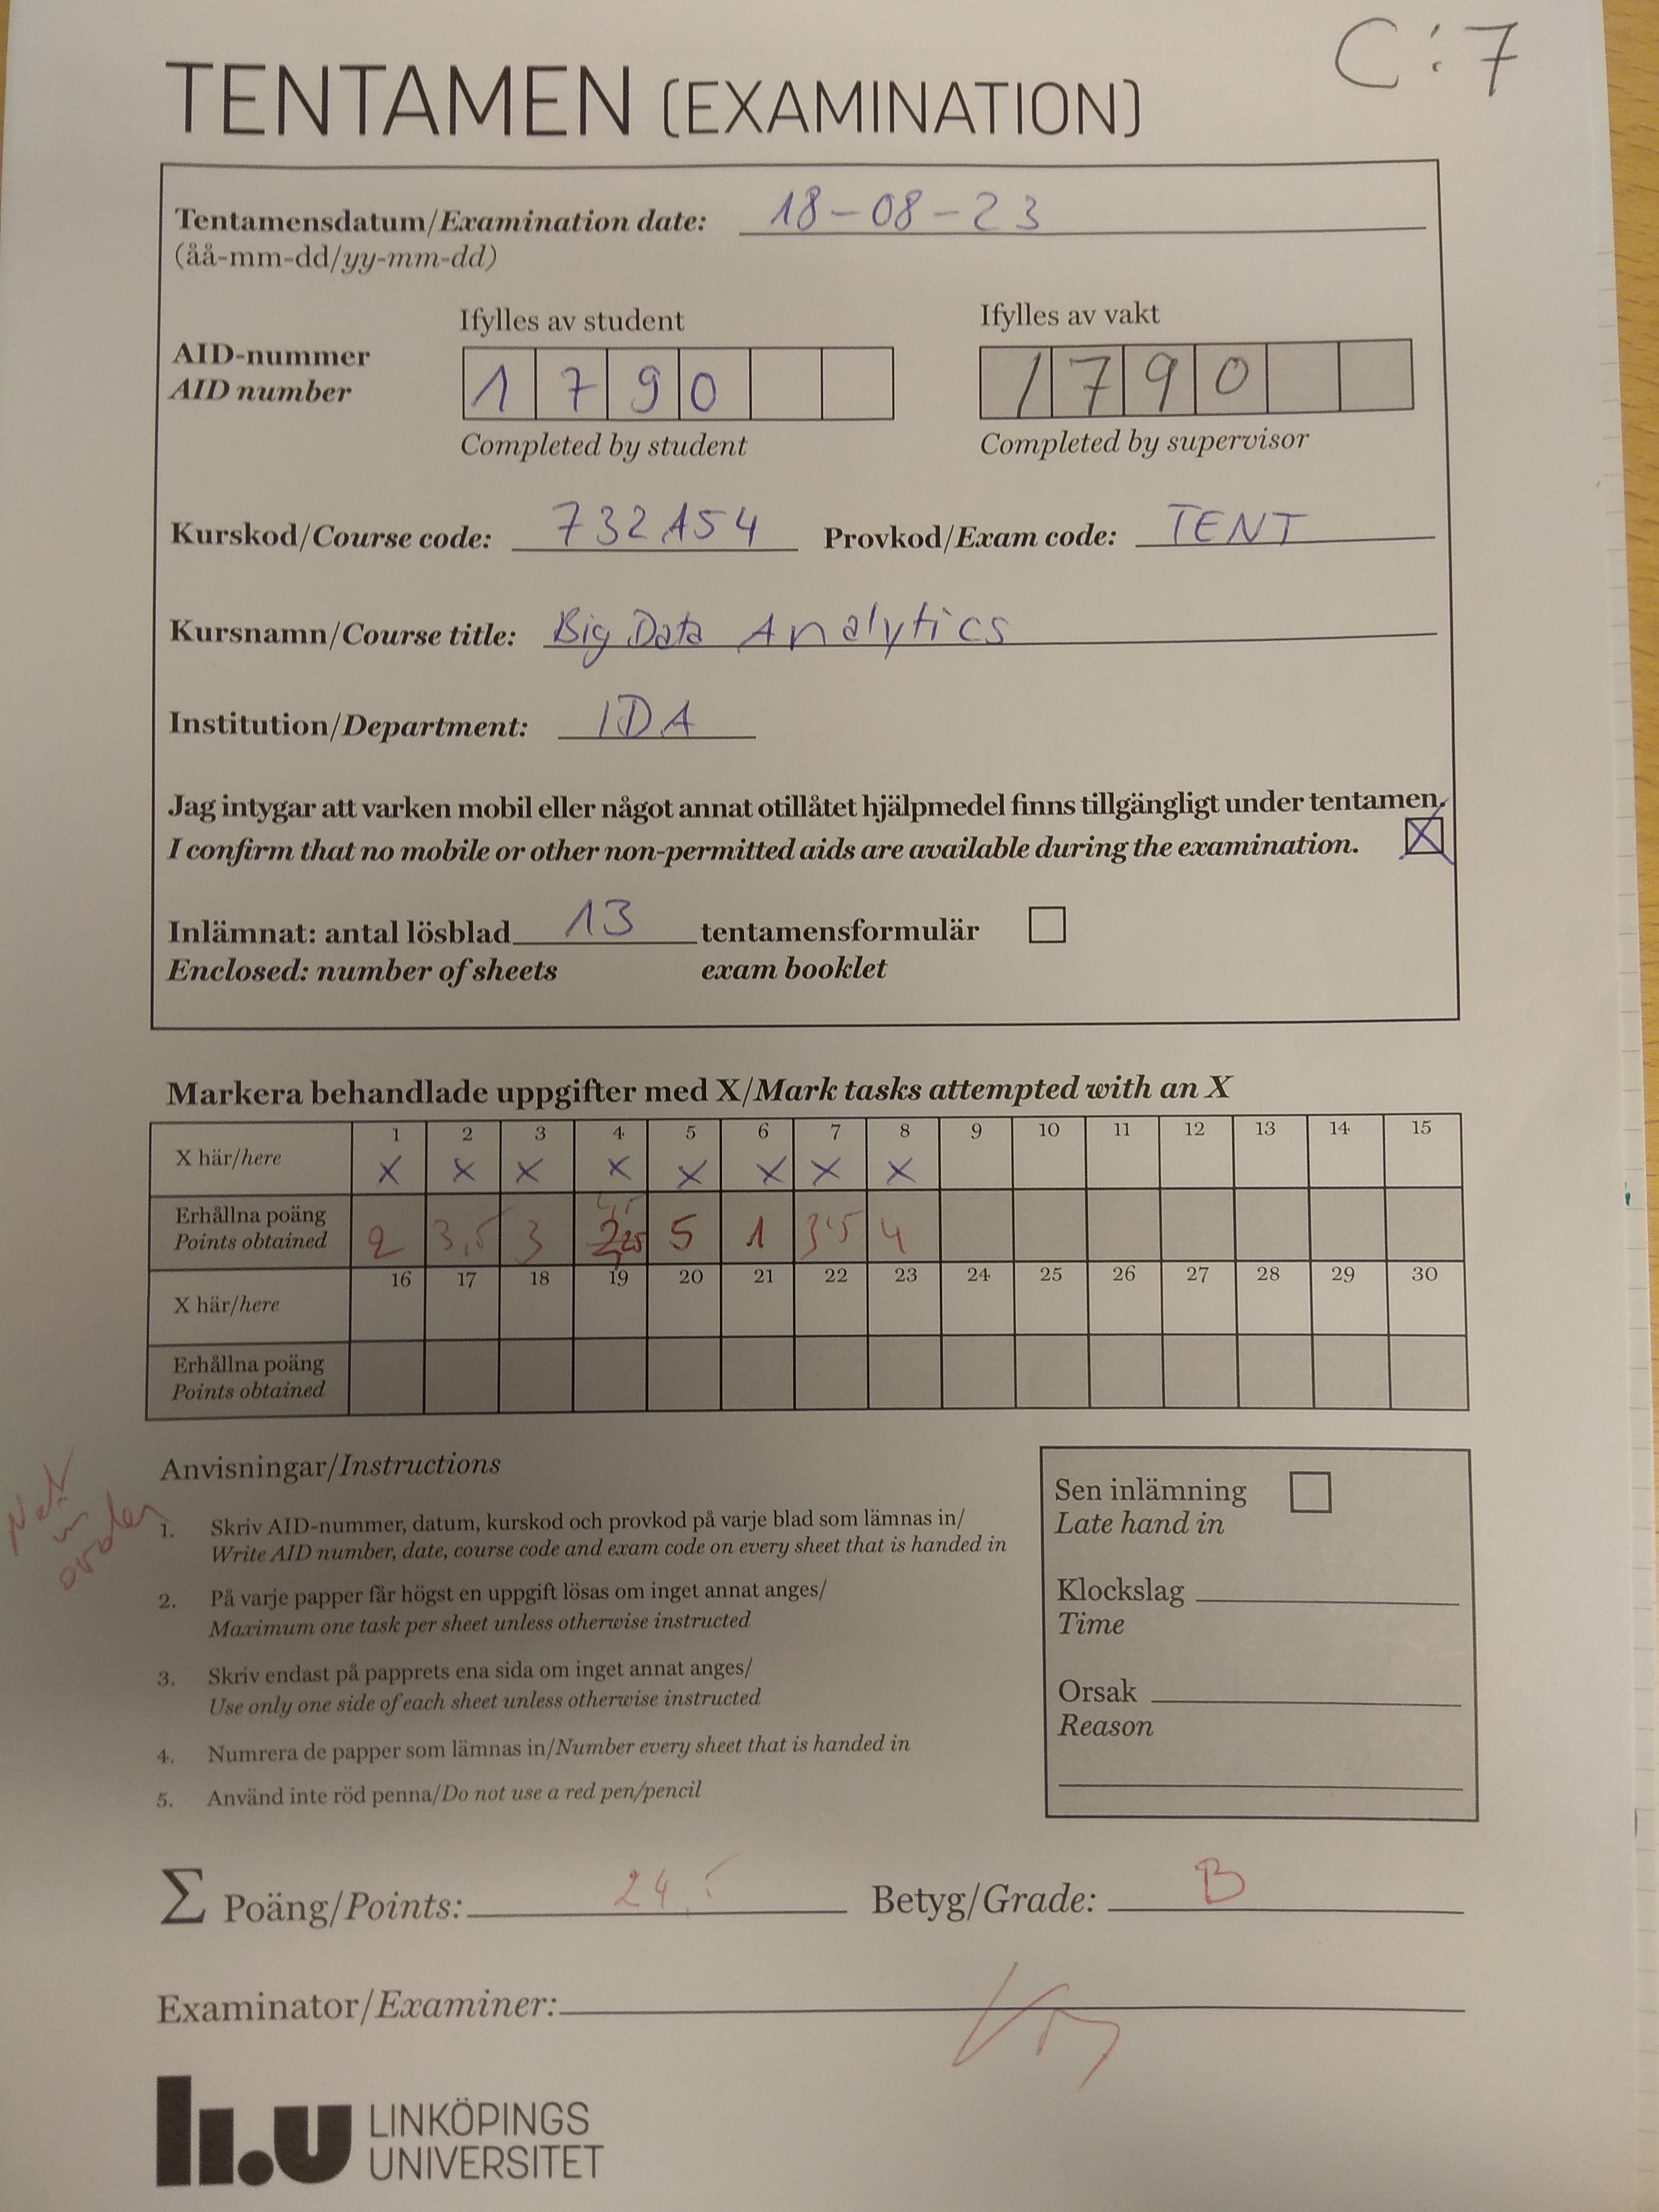 C:7
TENTAMEN (EXAMINATION)
Tentamensdatum/Examination date: 18-08-23
(åå-mm-dd/yy-mm-dd)
Ifylles av student Ifylles av vakt
AID-nummer
AID number 1 7 9 0 1 7 9 0
Completed by student Completed by supervisor
Kurskod/Course code: 732A54 Provkod/Exam code: TENT
Kursnamn/Course title: Big Data Analytics
Institution/Department: IDA
Jag intygar att varken mobil eller något annat otillåtet hjälpmedel finns tillgängligt under tentamen.
I confirm that no mobile or other non-permitted aids are available during the examination. X
Inlämnat: antal lösblad 13 tentamensformulär
Enclosed: number of sheets exam booklet
Markera behandlade uppgifter med X/Mark tasks attempted with an X
1 2 3 4 5 6 7 8 9 10 11 12 13 14 15
X här/here X X X X X X X X
Erhållna poäng
Points obtained 2 3,5 3 5 1 3,5 4
16 17 18 19 20 21 22 23 24 25 26 27 28 29 30
X här/here
Erhållna poäng
Points obtained
Not in order
Anvisningar/Instructions
1. Skriv AID-nummer, datum, kurskod och provkod på varje blad som lämnas in/
Write AID number, date, course code and exam code on every sheet that is handed in
2. På varje papper får högst en uppgift lösas om inget annat anges/
Maximum one task per sheet unless otherwise instructed
3. Skriv endast på papprets ena sida om inget annat anges/
Use only one side of each sheet unless otherwise instructed
4. Numrera de papper som lämnas in/Number every sheet that is handed in
5. Använd inte röd penna/Do not use a red pen/pencil
Sen inlämning
Late hand in
Klockslag
Time
Orsak
Reason
Σ Poäng/Points: 24,5 Betyg/Grade: B
Examinator/Examiner:
li.u LINKÖPINGS
UNIVERSITET